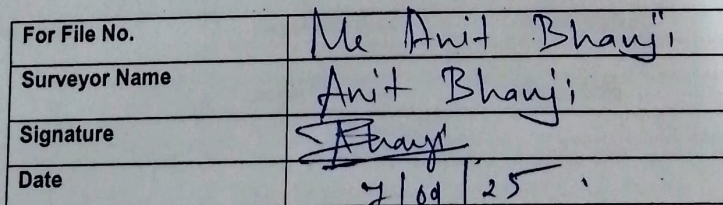 For File No. Me Anit Bhanji
Surveyor Name Anit Bhanji
Signature
Date 7/09/25